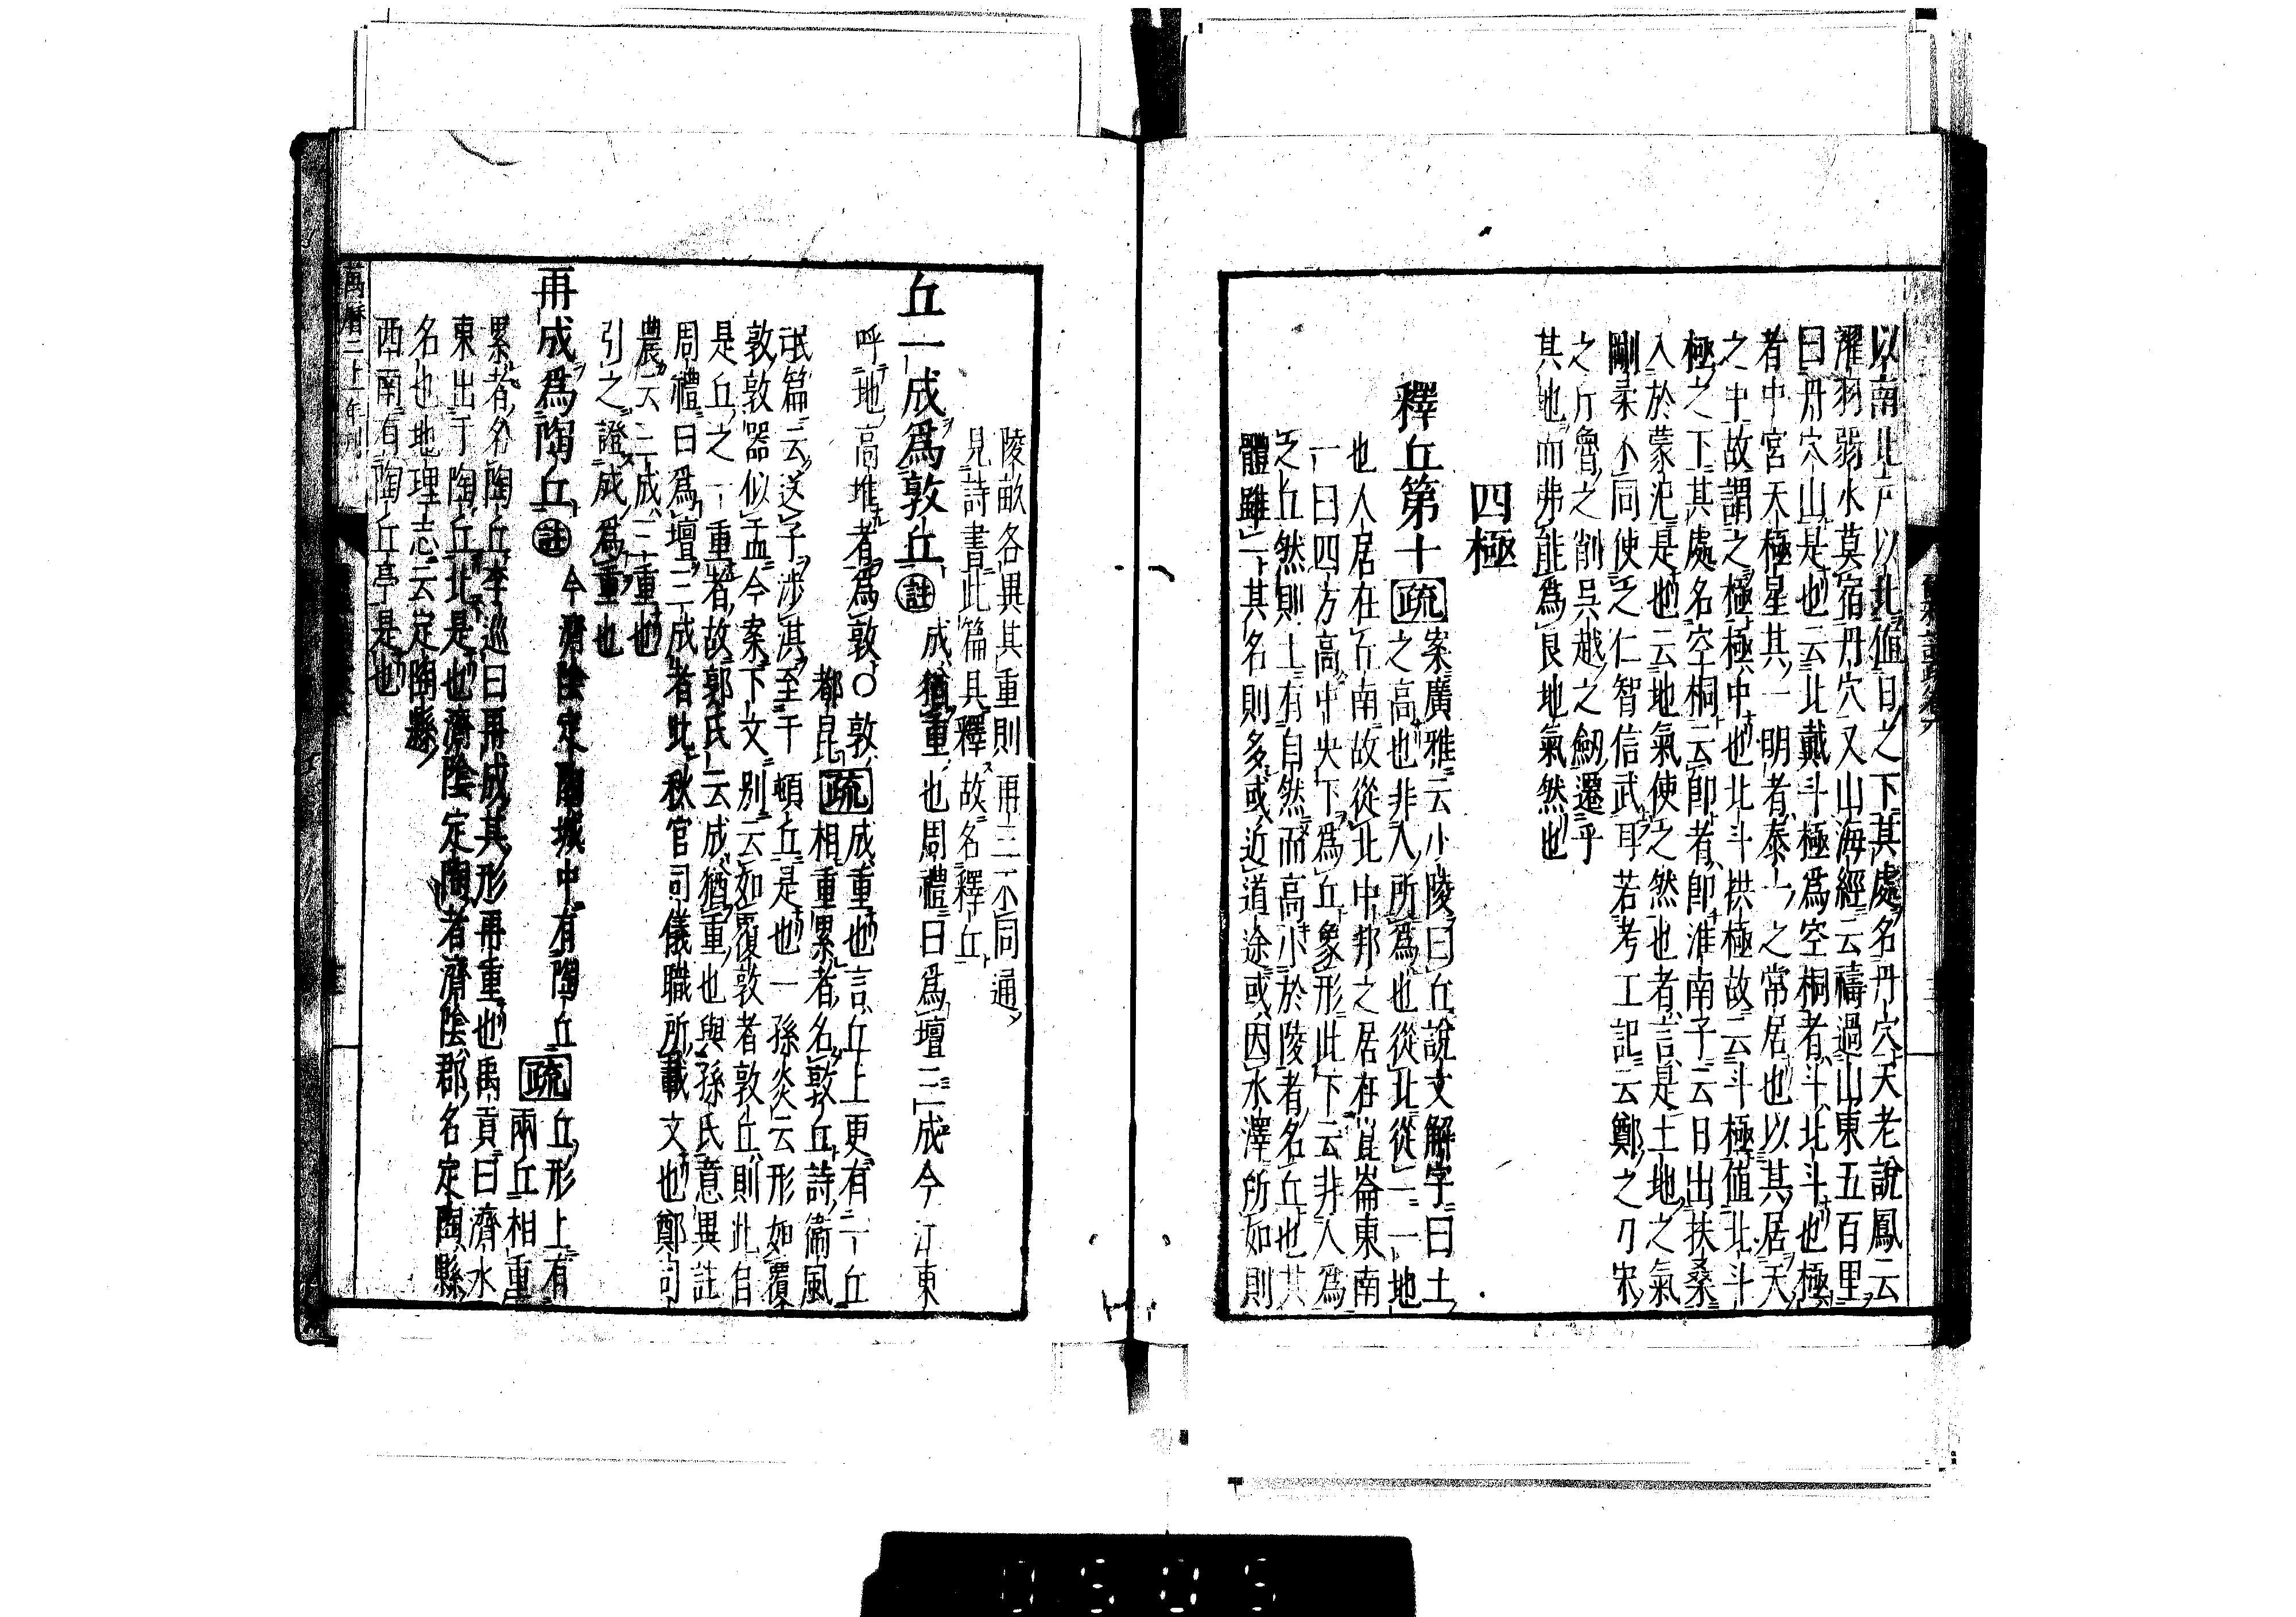 以南北戶以北值日之下其處名丹穴天老說鳳云
濯羽弱水莫宿丹穴又山海經云禱過山東五百里
曰丹穴山是也云北戴斗極爲空桐者斗北斗也極
者中宮天極星其一明者泰一之常居也以其居天
之中故謂之極極中也北斗拱極故云斗極值北斗
極之下其處名空桐云卽者卽淮南子云日出扶桑
入於蒙汜是也云地氣使之然也者言是土地之氣
剛柔不同使之仁智信武耳若考工記云鄭之刀宋
之斤魯之削吳越之劒遷乎
其地而弗能爲良地氣然也
四極
釋丘第十疏
案廣雅云小陵曰丘說文解字曰土
之高也非人所爲也從北從一一地
也人居在丘南故從北中邦之居在崑崙東南
一曰四方高中央下爲丘象形此下云非人爲
之丘然則土有自然而高小於陵者名丘也其
體雖一其名則多或近道途或因水澤所如則
陵畝各異其重則再三不同通
見詩書此篇具釋故名釋丘
丘一成爲敦丘註
成猶重也周禮曰爲壇三成今江東
呼地高堆者爲敦○敦
都昆
疏
成重也言丘上更有一丘
相重累者名敦丘詩衞風
氓篇云送子涉淇至于頓丘是也一孫炎云形如覆
敦敦器似盂今案下文別云如覆敦者敦丘則此自
是丘之一重者故郭氏云成猶重也與孫氏意異註
周禮曰爲壇三成者此秋官司儀職所載文也鄭司
農云三成三重也
引之證成爲重也
再成爲陶丘註
今濟陰定陶城中有陶丘
疏
丘形上有
兩丘相重
累者名陶丘李巡曰再成其形再重也禹貢曰濟水
東出于陶丘北是也濟陰定陶者濟陰郡名定陶縣
名也地理志云定陶縣
西南有陶丘亭是也
萬曆二十年刊